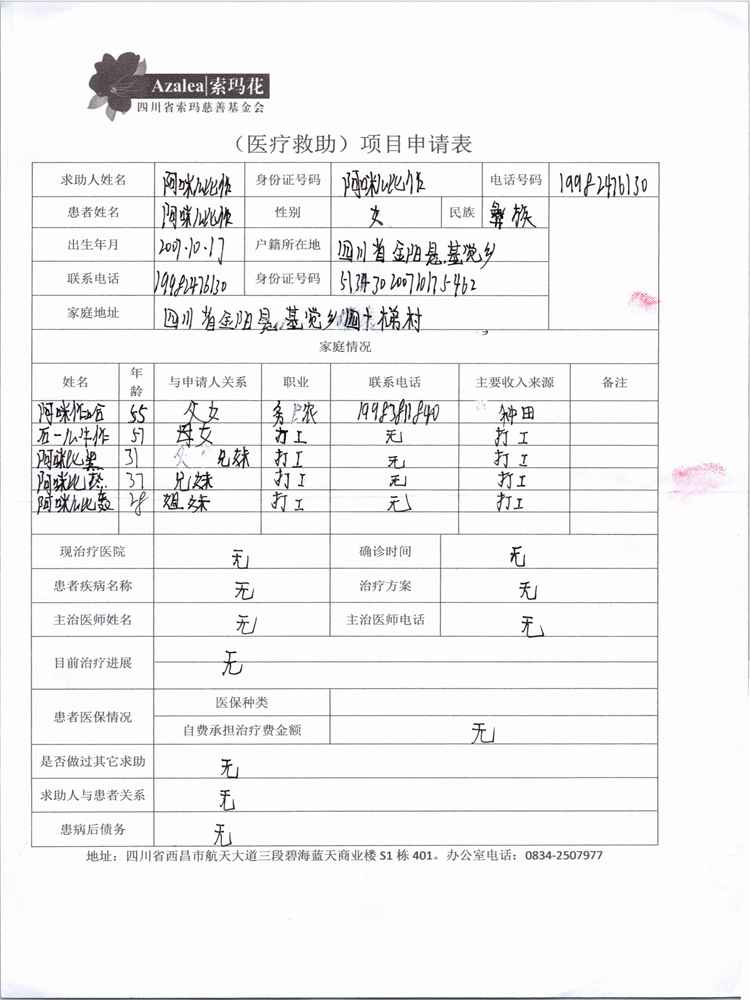 Azalea|索玛花
四川省索玛慈善基金会
（医疗救助）项目申请表
求助人姓名 阿咪么比作 身份证号码 阿咪么比作 电话号码 19982476130
患者姓名 阿咪么比作 性别 女 民族 彝族
出生年月 2007.10.17 户籍所在地 四川省金阳县基觉乡
联系电话 19982476130 身份证号码
家庭地址 四川省金阳县基觉乡 梯村
家庭情况
姓名 年龄 与申请人关系 职业 联系电话 主要收入来源 备注
55 父女 务农 19983811840 种田
57 母女 打工 无 打工
31 兄妹 打工 无 打工
37 兄妹 打工 无 打工
28 姐妹 打工 无 打工
现治疗医院 无 确诊时间 无
患者疾病名称 无 治疗方案 无
主治医师姓名 无 主治医师电话 无
目前治疗进展 无
患者医保情况 医保种类
自费承担治疗费金额 无
是否做过其它求助 无
求助人与患者关系 无
患病后债务 无
地址：四川省西昌市航天大道三段碧海蓝天商业楼 S1 栋 401。办公室电话：0834-2507977